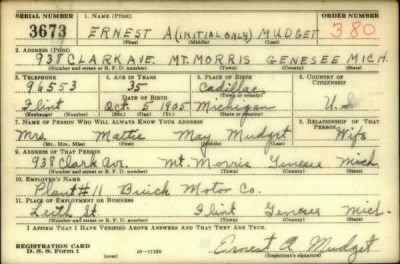 SERIAL NUMBER 1. NAME (Print) ORDER NUMBER
3673 ERNEST A (INITIAL ONLY) MUDGET 380
(First) (Middle) (Last)
2. ADDRESS (Print)
938 CLARK AVE. MT. MORRIS GENESEE MICH.
(Number and street or R. F. D. number) (Town) (County) (State)
3. TELEPHONE 4. AGE IN YEARS 5. PLACE OF BIRTH 6. COUNTRY OF CITIZENSHIP
96553 35 Cadillac
DATE OF BIRTH (Town or county)
Flint Oct. 5 1905 Michigan U.S.
(Exchange) (Number) (Mo.) (Day) (Yr.) (State or country)
7. NAME OF PERSON WHO WILL ALWAYS KNOW YOUR ADDRESS 8. RELATIONSHIP OF THAT PERSON
Mrs. Mattie May Mudget Wife
(Mr., Mrs., Miss) (First) (Middle) (Last)
9. ADDRESS OF THAT PERSON
938 Clark Ave. Mt. Morris Genesee Mich
(Number and street or R. F. D. number) (Town) (County) (State)
10. EMPLOYER'S NAME
Plant #11 Buick Motor Co.
11. PLACE OF EMPLOYMENT OR BUSINESS
Leith St. Flint Genesee Mich.
(Number and street or R. F. D. number) (Town) (County) (State)
I AFFIRM THAT I HAVE VERIFIED ABOVE ANSWERS AND THAT THEY ARE TRUE.
REGISTRATION CARD
D. S. S. Form 1 (over) 16—17105 Ernest A Mudget
(Registrant's signature)